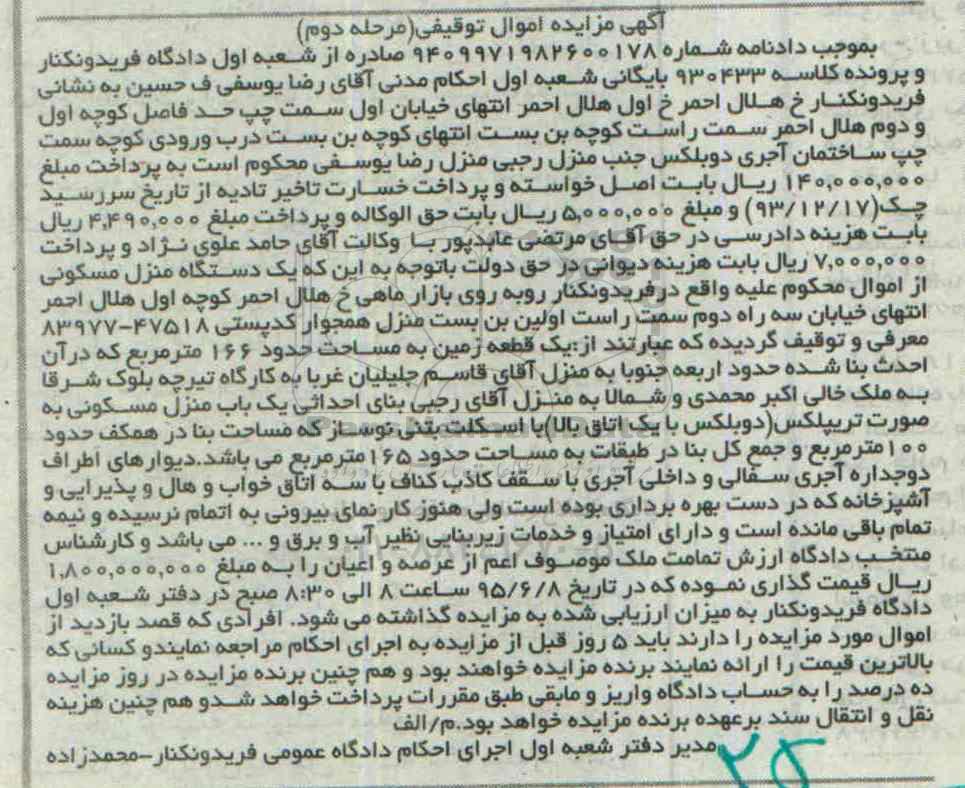 آگهی مزایده اموال توقیفی(مرحله دوم)
بموجب دادنامه شماره ۹۴۰۹۹۷۱۹۸۲۶۰۰۱۷۸ صادره از شعبه اول دادگاه فریدونکنار
و پرونده کلاسه ۹۳۰۴۳۳ بایگانی شعبه اول احکام مدنی آقای رضا یوسفی ف حسین به نشانی
فریدونکنار خ هلال احمر خ اول هلال احمر انتهای خیابان اول سمت چپ حد فاصل کوچه اول
و دوم هلال احمر سمت راست کوچه بن بست انتهای کوچه بن بست درب ورودی کوچه سمت
چپ ساختمان آجری دوبلکس جنب منزل رجبی منزل رضا یوسفی محکوم است به پرداخت مبلغ
۱۴۰,۰۰۰,۰۰۰ ریال بابت اصل خواسته و پرداخت خسارت تاخیر تادیه از تاریخ سررسید
چک(۹۳/۱۲/۱۷) و مبلغ ۵,۰۰۰,۰۰۰ ریال بابت حق الوکاله و پرداخت مبلغ ۴,۴۹۰,۰۰۰ ریال
بابت هزینه دادرسی در حق آقای مرتضی عابدپور با وکالت آقای حامد علوی نژاد و پرداخت
۷,۰۰۰,۰۰۰ ریال بابت هزینه دیوانی در حق دولت باتوجه به این که یک دستگاه منزل مسکونی
از اموال محکوم علیه واقع درفریدونکنار روبه روی بازار ماهی خ هلال احمر کوچه اول هلال احمر
انتهای خیابان سه راه دوم سمت راست اولین بن بست منزل همجوار کدپستی ۴۷۵۱۸-۸۳۹۷۷
معرفی و توقیف گردیده که عبارتند از:یک قطعه زمین به مساحت حدود ۱۶۶ مترمربع که درآن
احدث بنا شده حدود اربعه جنوبا به منزل آقای قاسم جلیلیان غربا به کارگاه تیرچه بلوک شرقا
به ملک خالی اکبر محمدی و شمالا به منزل آقای رجبی بنای احداثی یک باب منزل مسکونی به
صورت تریپلکس(دوبلکس با یک اتاق بالا)با اسکلت بتنی نوساز که مساحت بنا در همکف حدود
۱۰۰مترمربع و جمع کل بنا در طبقات به مساحت حدود ۱۶۵مترمربع می باشد.دیوارهای اطراف
دوجداره آجری سفالی و داخلی آجری با سقف کاذب کناف با سه اتاق خواب و هال و پذیرایی و
آشپزخانه که در دست بهره برداری بوده است ولی هنوز کار نمای بیرونی به اتمام نرسیده و نیمه
تمام باقی مانده است و دارای امتیاز و خدمات زیربنایی نظیر آب و برق و ... می باشد و کارشناس
منتخب دادگاه ارزش تمامت ملک موصوف اعم از عرصه و اعیان را به مبلغ ۱,۸۰۰,۰۰۰,۰۰۰
ریال قیمت گذاری نموده که در تاریخ ۹۵/۶/۸ ساعت ۸ الی ۸:۳۰ صبح در دفتر شعبه اول
دادگاه فریدونکنار به میزان ارزیابی شده به مزایده گذاشته می شود. افرادی که قصد بازدید از
اموال مورد مزایده را دارند باید ۵ روز قبل از مزایده به اجرای احکام مراجعه نمایندو کسانی که
بالاترین قیمت را ارائه نمایند برنده مزایده خواهند بود و هم چنین برنده مزایده در روز مزایده
ده درصد را به حساب دادگاه واریز و مابقی طبق مقررات پرداخت خواهد شدو هم چنین هزینه
نقل و انتقال سند برعهده برنده مزایده خواهد بود.م/الف
مدیر دفتر شعبه اول اجرای احکام دادگاه عمومی فریدونکنار-محمدزاده